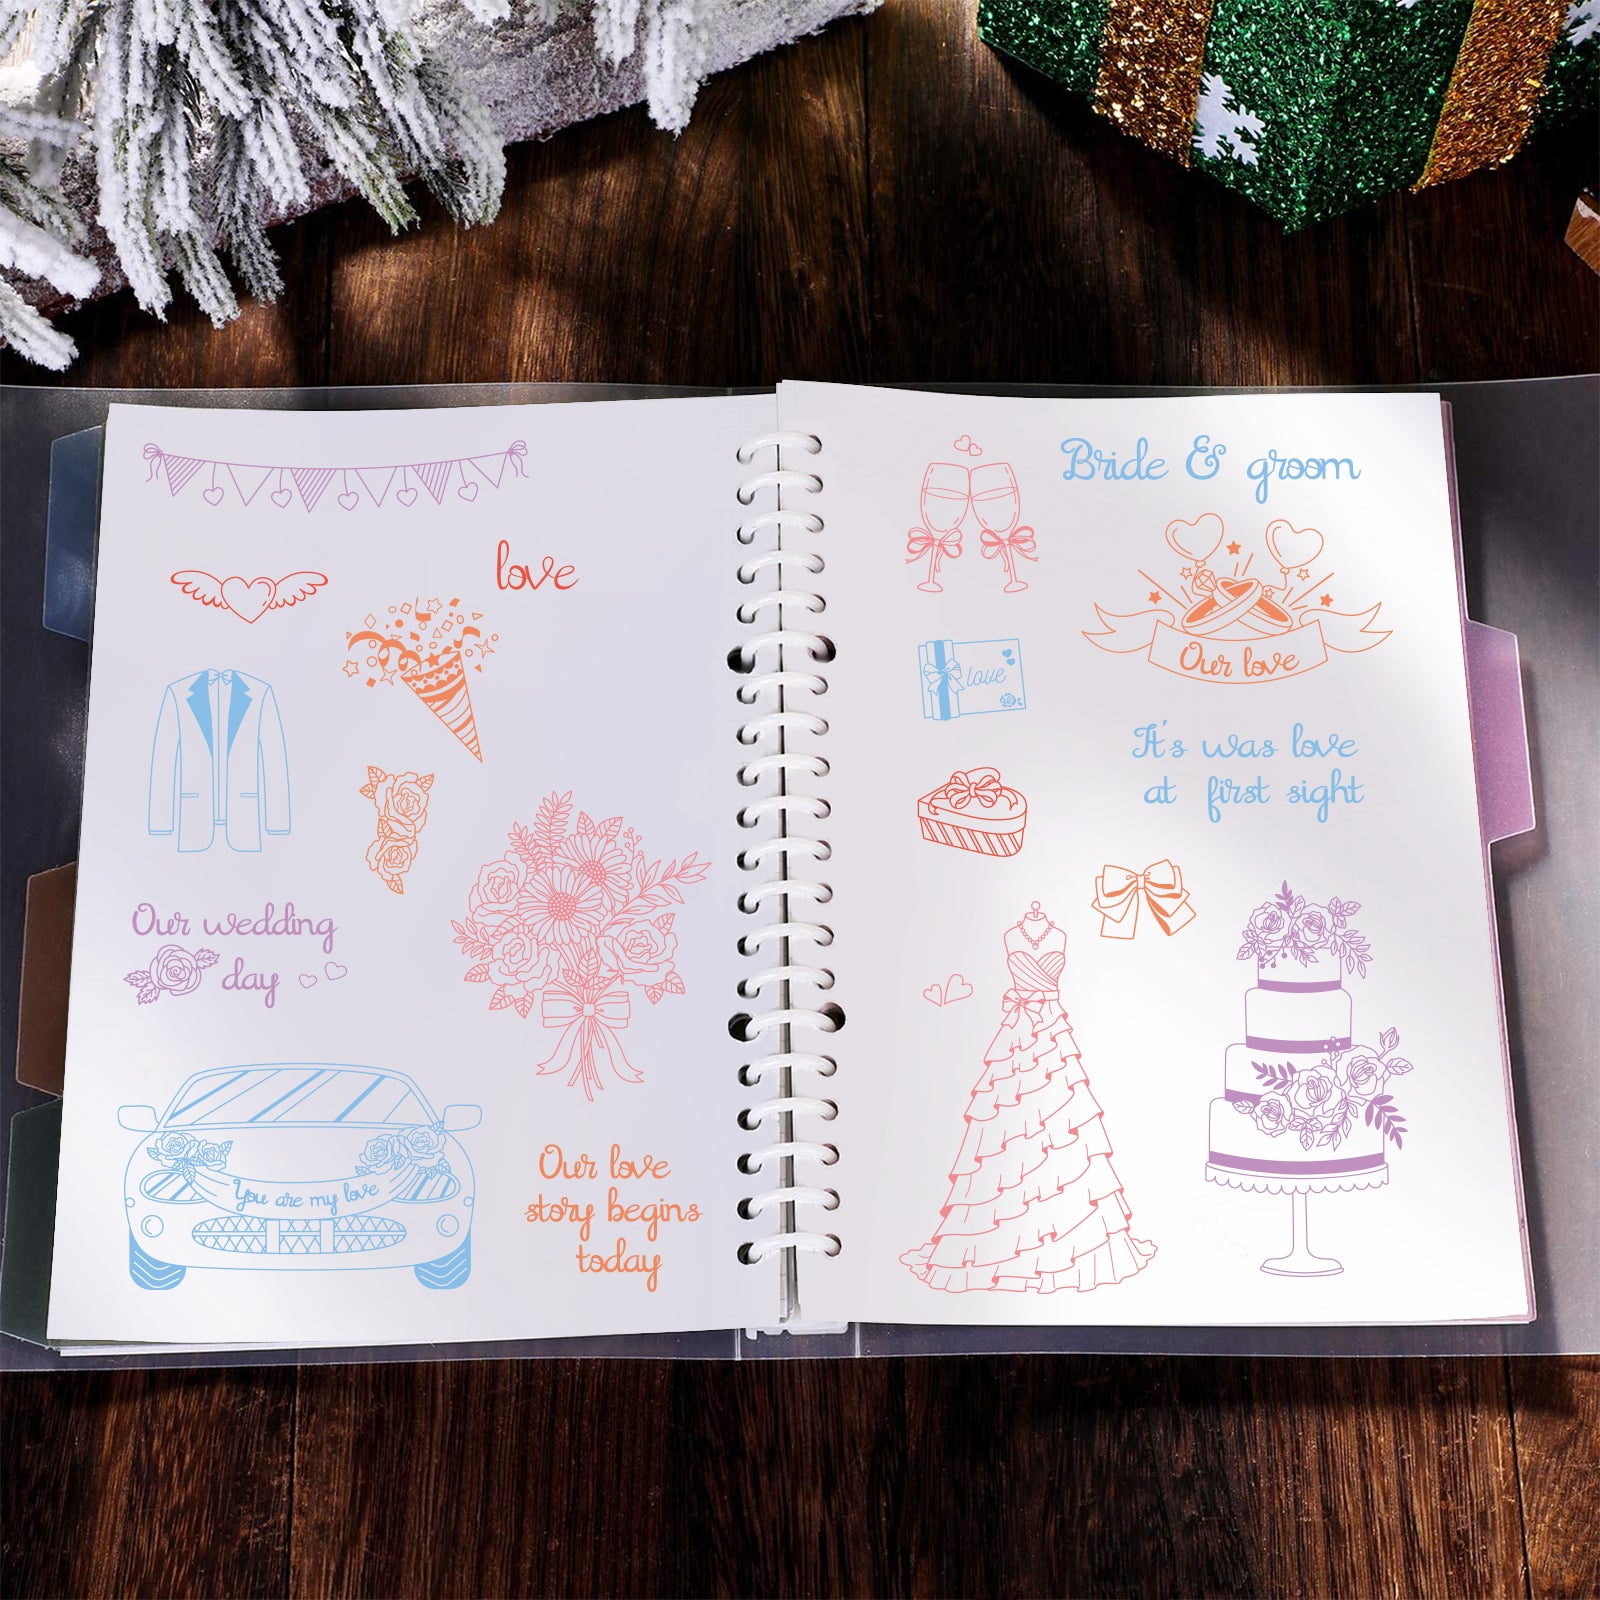 love
Our wedding
day
You are my love
Our love
story begins
today
Bride & groom
Our love
love
It's was love
at first sight